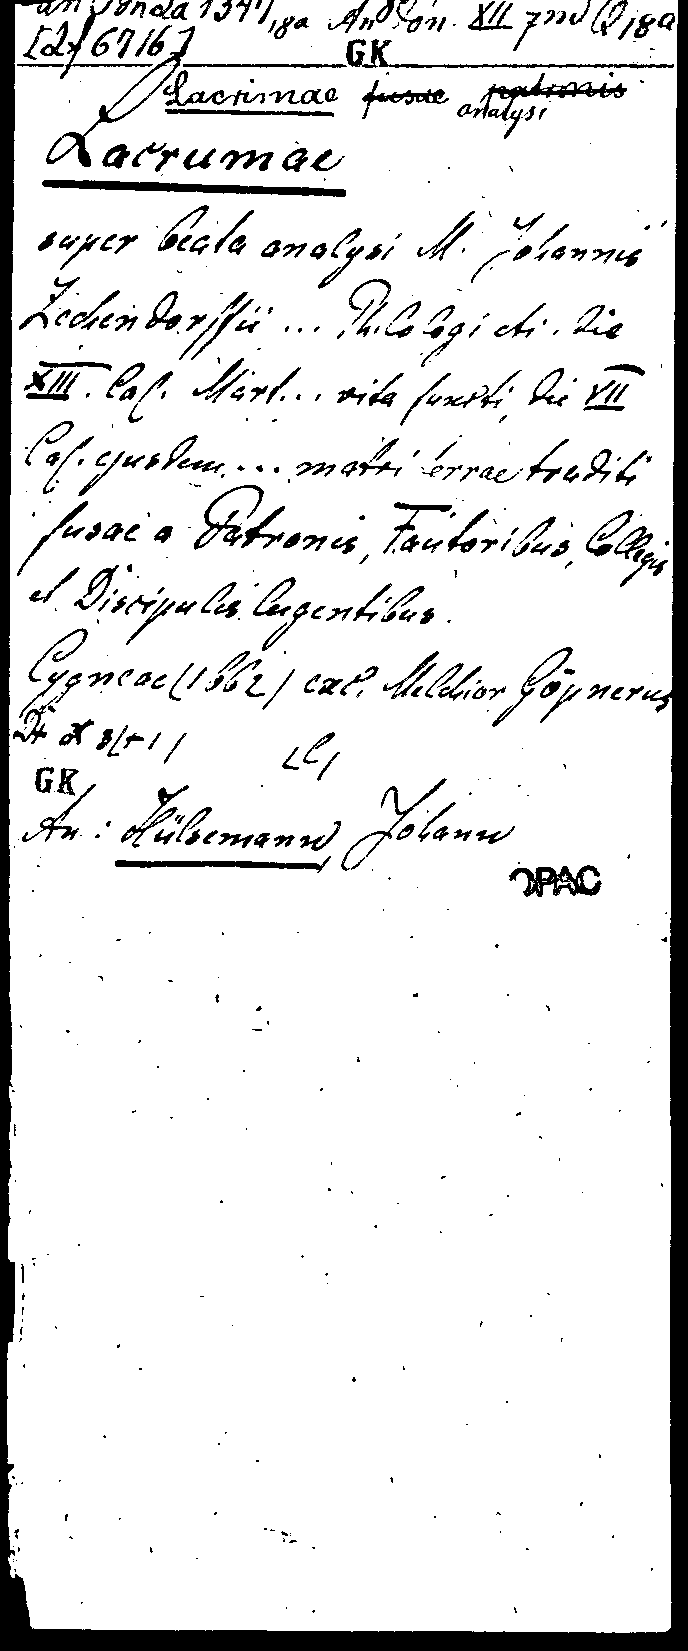 an Ponča 1347,18a An Pon. XII 7nd Q,18a
[2y 6716] GK
Lacrimae fusae patronis
analysi
Lacrumae
super beata analysi M. Johannis
Zechendorffii ... Philologi etc. die
XIII. Cal. Mart... vita functi, die VII
Cal. ejusdem ... matri terrae traditi
fusae a Patronis, Fautoribus, Collegis
et Discipulis lugentibus.
Cygneae (1662) exc. Melchior Göpnerus
GK
An: Hülsemann, Johann
OPAC